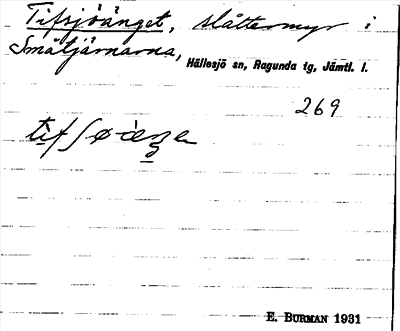 Tifsjöänget, slåttermyr i
Småtjärnarna, Hällesjö sn, Ragunda tg, Jämtl. l.
269
E. BURMAN 1931